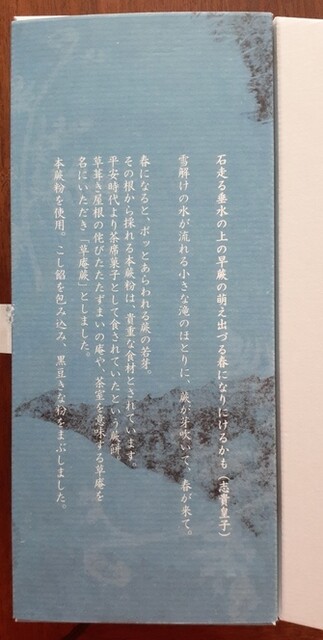 石走る垂水の上の早蕨の萌え出づる春になりにけるかも（志貴皇子）
雪解けの水が流れる小さな滝のほとりに、蕨が芽吹いて、春が来て。
春になると、ポッとあらわれる蕨の若芽。
その根から採れる本蕨粉は、貴重な食材とされています。
平安時代より茶席菓子として食されていたという蕨餅。
草葺き屋根の侘びたたたずまいの庵や、茶室を意味する草庵を
名にいただき「草庵蕨」としました。
本蕨粉を使用。こし餡を包み込み、黒豆きな粉をまぶしました。